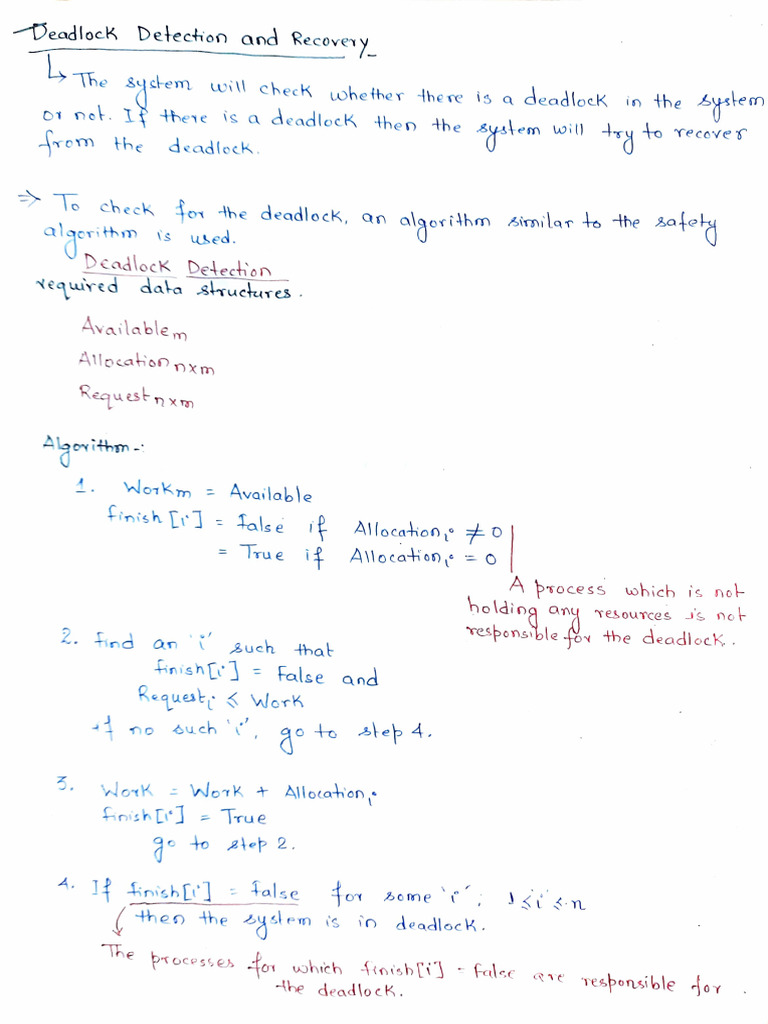 Deadlock Detection and Recovery
↳ The system will check whether there is a deadlock in the system
or not. If there is a deadlock then the system will try to recover
from the deadlock.
⇒ To check for the deadlock, an algorithm similar to the safety
algorithm is used.
Deadlock Detection
required data structures.
Available m
Allocation n×m
Request n×m
Algorithm-:
1. Workm = Available
finish [i] = false if Allocationi ≠ 0
= True if Allocationi = 0
A process which is not
holding any resources is not
responsible for the deadlock.
2. find an 'i' such that
finish[i] = False and
Requesti ≤ Work
if no such 'i', go to step 4.
3. Work = Work + Allocationi
finish[i] = True
go to step 2.
4. If finish[i] = false for some 'i', 1≤i≤n
then the system is in deadlock.
The processes for which finish[i] = false are responsible for
the deadlock.